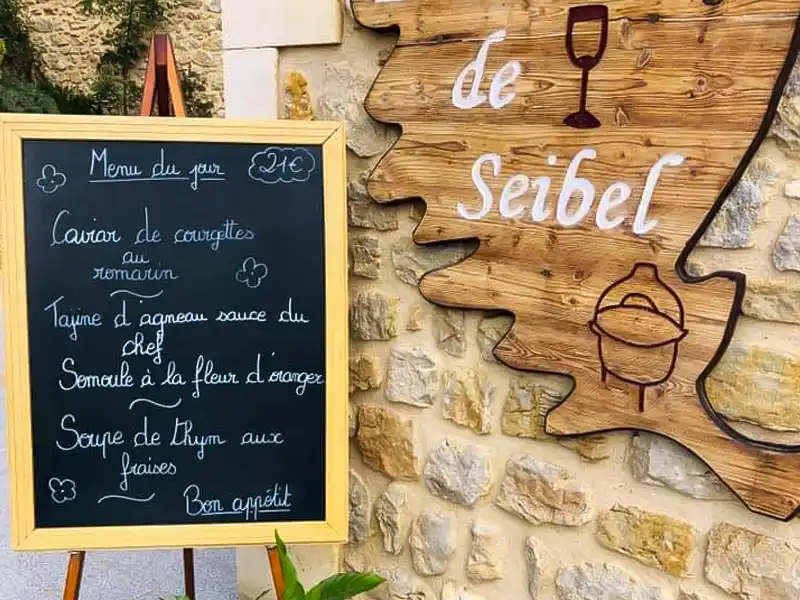 Menu du jour 21€
Caviar de courgettes
au
romarin
Tajine d'agneau sauce du
chef
Semoule à la fleur d'oranger
Soupe de thym aux
fraises
Bon appétit
de
Seibel